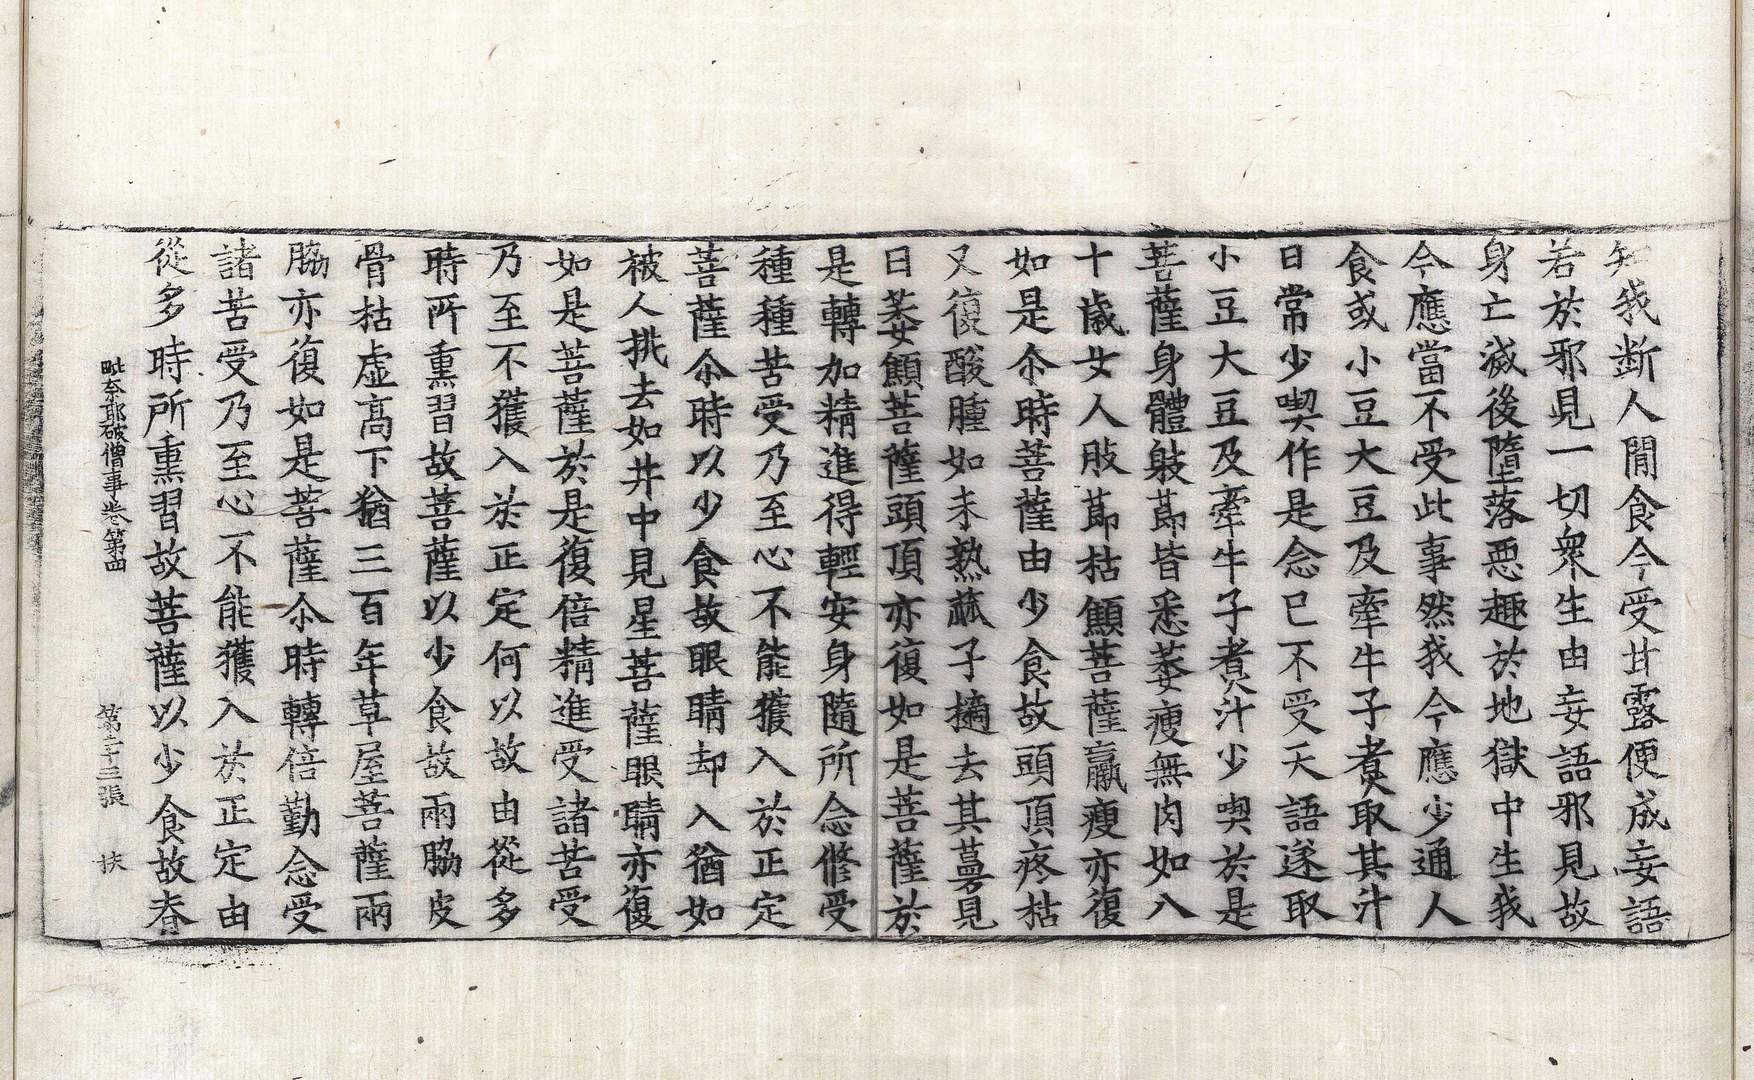 知我断人閒食今受甘露便成妄語
若於邪見一切衆生由妄語邪見故
身亡滅後墮落惡趣於地獄中生我
今應當不受此事然我今應少通人
食或小豆大豆及牽牛子煮取其汁
日常少喫作是念已不受天語遂取
小豆大豆及牽牛子煮汁少喫於是
菩薩身體肢莭皆悉萎瘦無肉如八
十歲女人肢莭枯顦菩薩羸瘦亦復
如是尒時菩薩由少食故頭頂疼枯
又復酸腫如未熟蓏子擿去其蔓見
日萎顦菩薩頭頂亦復如是菩薩於
是轉加精進得輕安身隨所念修受
種種苦受乃至心不能獲入於正定
菩薩尒時以少食故眼睛却入猶如
被人挑去如井中見星菩薩眼睛亦復
如是菩薩於是復倍精進受諸苦受
乃至不獲入於正定何以故由從多
時所熏習故菩薩以少食故兩脇皮
骨枯虛高下猶三百年草屋菩薩兩
脇亦復如是菩薩尒時轉倍勤念受
諸苦受乃至心不能獲入於正定由
從多時所熏習故菩薩以少食故脊
毗奈耶破僧事卷第四 第二十三張 扶